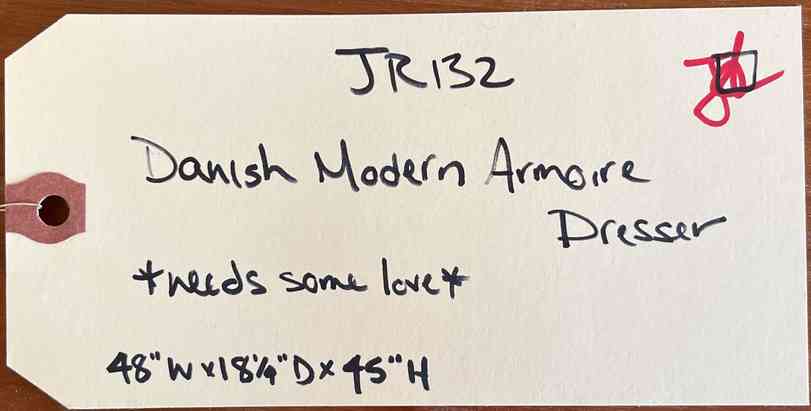 JR132
Danish Modern Armoire
Dresser
*needs some love*
48"W x 18¼"D x 45"H